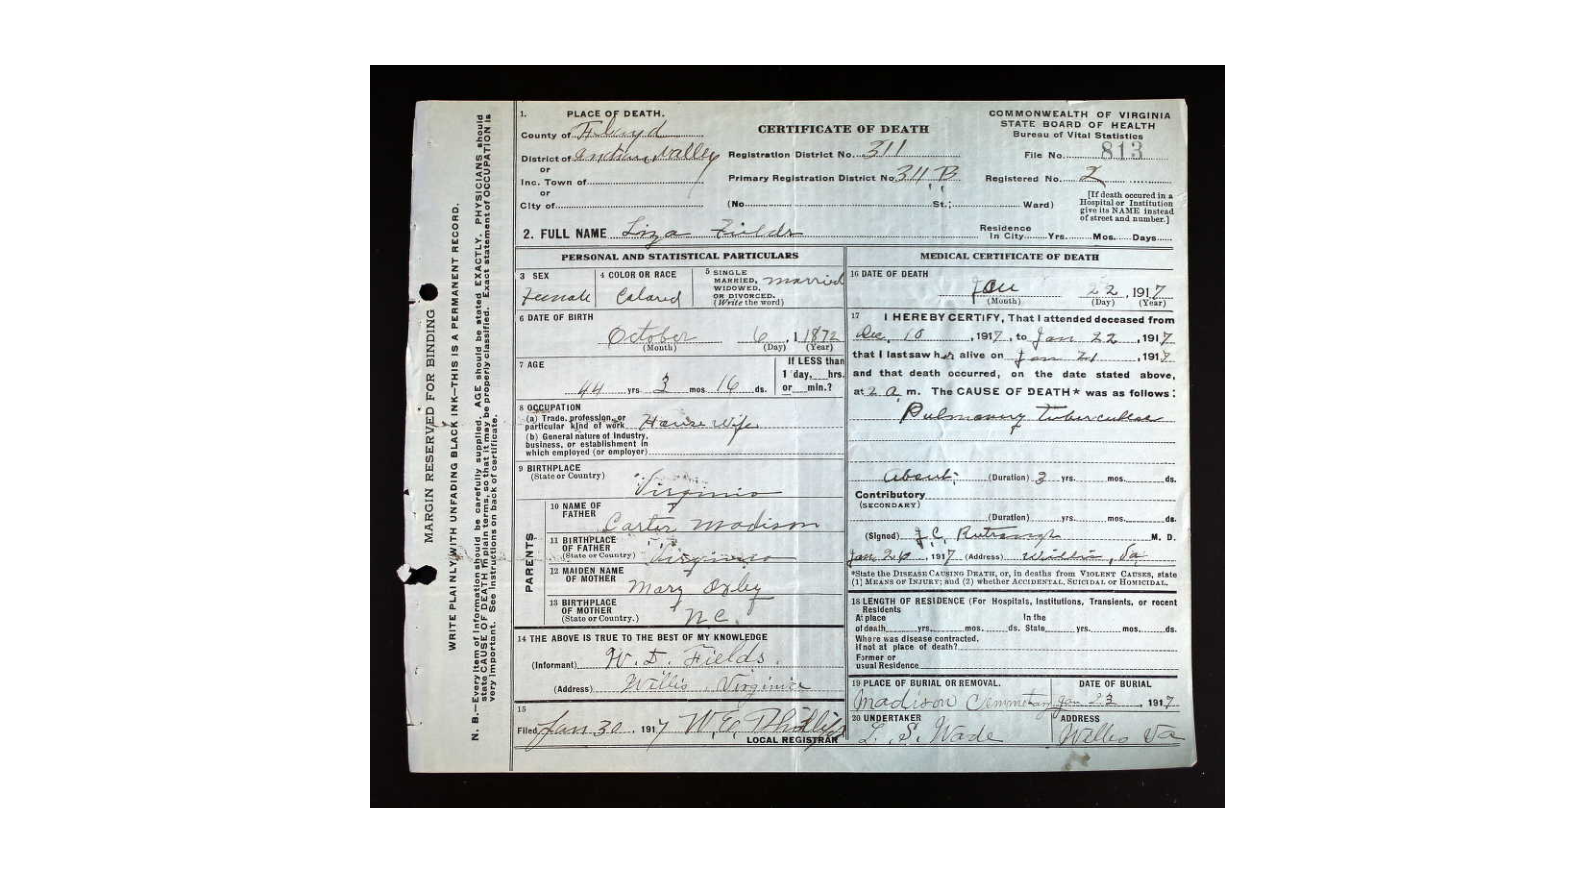 MARGIN RESERVED FOR BINDING
WRITE PLAINLY, WITH UNFADING BLACK INK—THIS IS A PERMANENT RECORD.
N. B.—Every item of information should be carefully supplied. AGE should be stated EXACTLY. PHYSICIANS should
state CAUSE OF DEATH in plain terms, so that it may be properly classified. Exact statement of OCCUPATION is
very important. See instructions on back of certificate.
1. PLACE OF DEATH.
County of Floyd
District of Indian Valley
or
Inc. Town of
or
City of
CERTIFICATE OF DEATH
Registration District No. 311
Primary Registration District No. 311 B
(No. St.; Ward)
COMMONWEALTH OF VIRGINIA
STATE BOARD OF HEALTH
Bureau of Vital Statistics
File No. 813
Registered No. 2
[If death occured in a
Hospital or Institution
give its NAME instead
of street and number.]
2. FULL NAME Liza Fields
Residence
In City Yrs. Mos. Days
PERSONAL AND STATISTICAL PARTICULARS
3 SEX
Female
4 COLOR OR RACE
Colored
5 SINGLE
MARRIED,
WIDOWED,
OR DIVORCED.
(Write the word)
married
6 DATE OF BIRTH
October 6, 1 1872
(Month) (Day) (Year)
7 AGE
44 yrs. 3 mos. 16 ds.
If LESS than
1 day, hrs.
or min.?
8 OCCUPATION
(a) Trade, profession, or
particular kind of work House wife
(b) General nature of industry,
business, or establishment in
which employed (or employer)
9 BIRTHPLACE
(State or Country)
Virginia
PARENTS
10 NAME OF
FATHER
Carter Madison
11 BIRTHPLACE
OF FATHER
(State or Country)
Virginia
12 MAIDEN NAME
OF MOTHER
Mary
13 BIRTHPLACE
OF MOTHER
(State or Country.)
N.C.
14 THE ABOVE IS TRUE TO THE BEST OF MY KNOWLEDGE
(Informant) W. D. Fields.
(Address) Willis Virginia
15
Filed Jan 30, 1917 W. E. Phillips
LOCAL REGISTRAR
MEDICAL CERTIFICATE OF DEATH
16 DATE OF DEATH
Jan 22, 1917
(Month) (Day) (Year)
17 I HEREBY CERTIFY, That I attended deceased from
Dec. 10, 1917, to Jan 22, 1917
that I last saw her alive on Jan 21, 1917
and that death occurred, on the date stated above,
at 2 a m. The CAUSE OF DEATH* was as follows:
Pulmonary tuberculosis
About (Duration) 3 yrs. mos. ds.
Contributory
(SECONDARY)
(Duration) yrs. mos. ds.
(Signed) J. C. M. D.
Jan 26, 1917 (Address) Willis, Va
*State the DISEASE CAUSING DEATH, or, in deaths from VIOLENT CAUSES, state
(1) MEANS OF INJURY; and (2) whether ACCIDENTAL, SUICIDAL or HOMICIDAL.
18 LENGTH OF RESIDENCE (For Hospitals, Institutions, Transients, or recent
Residents
At place In the
of death yrs. mos. ds. State yrs. mos. ds.
Where was disease contracted.
If not at place of death?
Former or
usual Residence
19 PLACE OF BURIAL OR REMOVAL.
Madison Cemmetary
DATE OF BURIAL
Jan 23, 1917
20 UNDERTAKER
L. S. Wade
ADDRESS
Willis Va